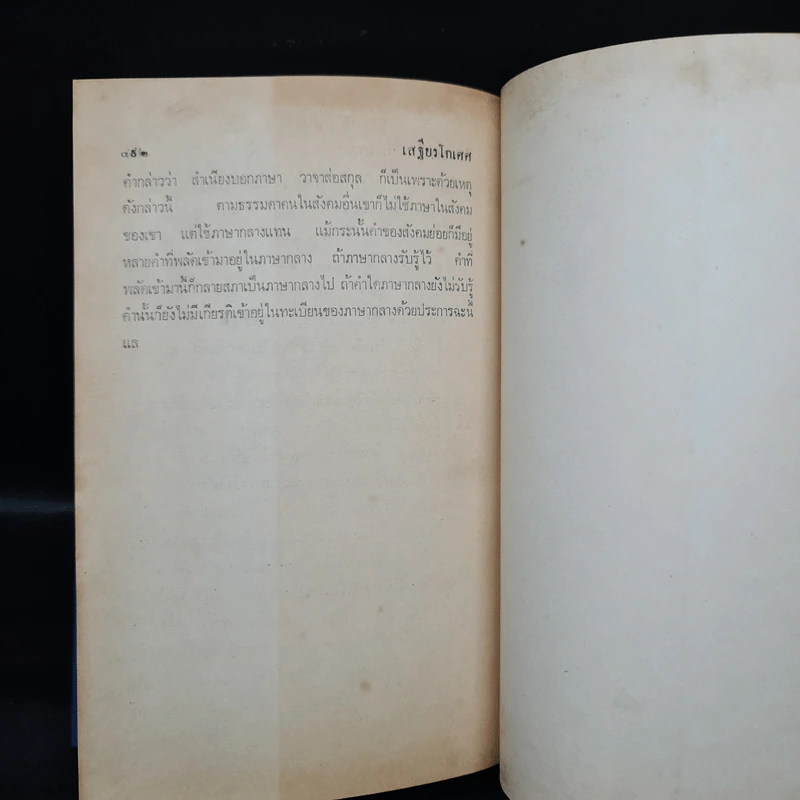 ๔๕๒ เสฐียรโกเศศ
คำกล่าวว่า สำเนียงบอกภาษา วาจาส่อสกุล ก็เป็นเพราะด้วยเหตุ
ดังกล่าวนี้ ตามธรรมดาคนในสังคมอื่นเขาก็ไม่ใช้ภาษาในสังคม
ของเขา แต่ใช้ภาษากลางแทน แม้กระนั้นคำของสังคมย่อยก็มีอยู่
หลายคำที่พลัดเข้ามาอยู่ในภาษากลาง ถ้าภาษากลางรับรู้ไว้ คำที่
พลัดเข้ามานี้ก็กลายสภาเป็นภาษากลางไป ถ้าคำใดภาษากลางยังไม่รับรู้
คำนั้นก็ยังไม่มีเกียรติเข้าอยู่ในทะเบียนของภาษากลางด้วยประการฉะนี้
แล